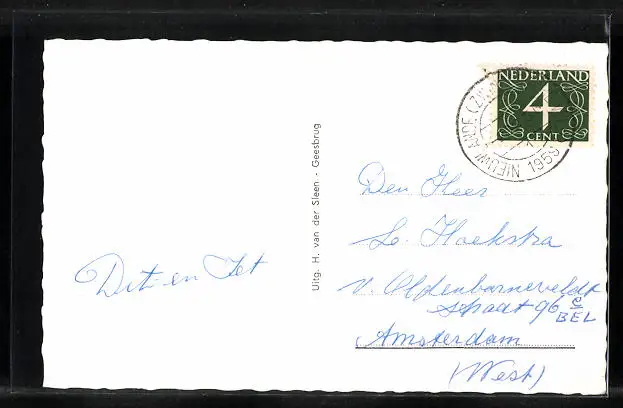 NEDERLAND
4
CENT
NIEUWLANDE (ZW. 1959
Den Heer
L. Hoekstra
v. Oldenbarneveldt
straat 96 e
BEL
Amsterdam
(West)
Dit en Jet
Uitg. H. van der Sleen - Geesbrug